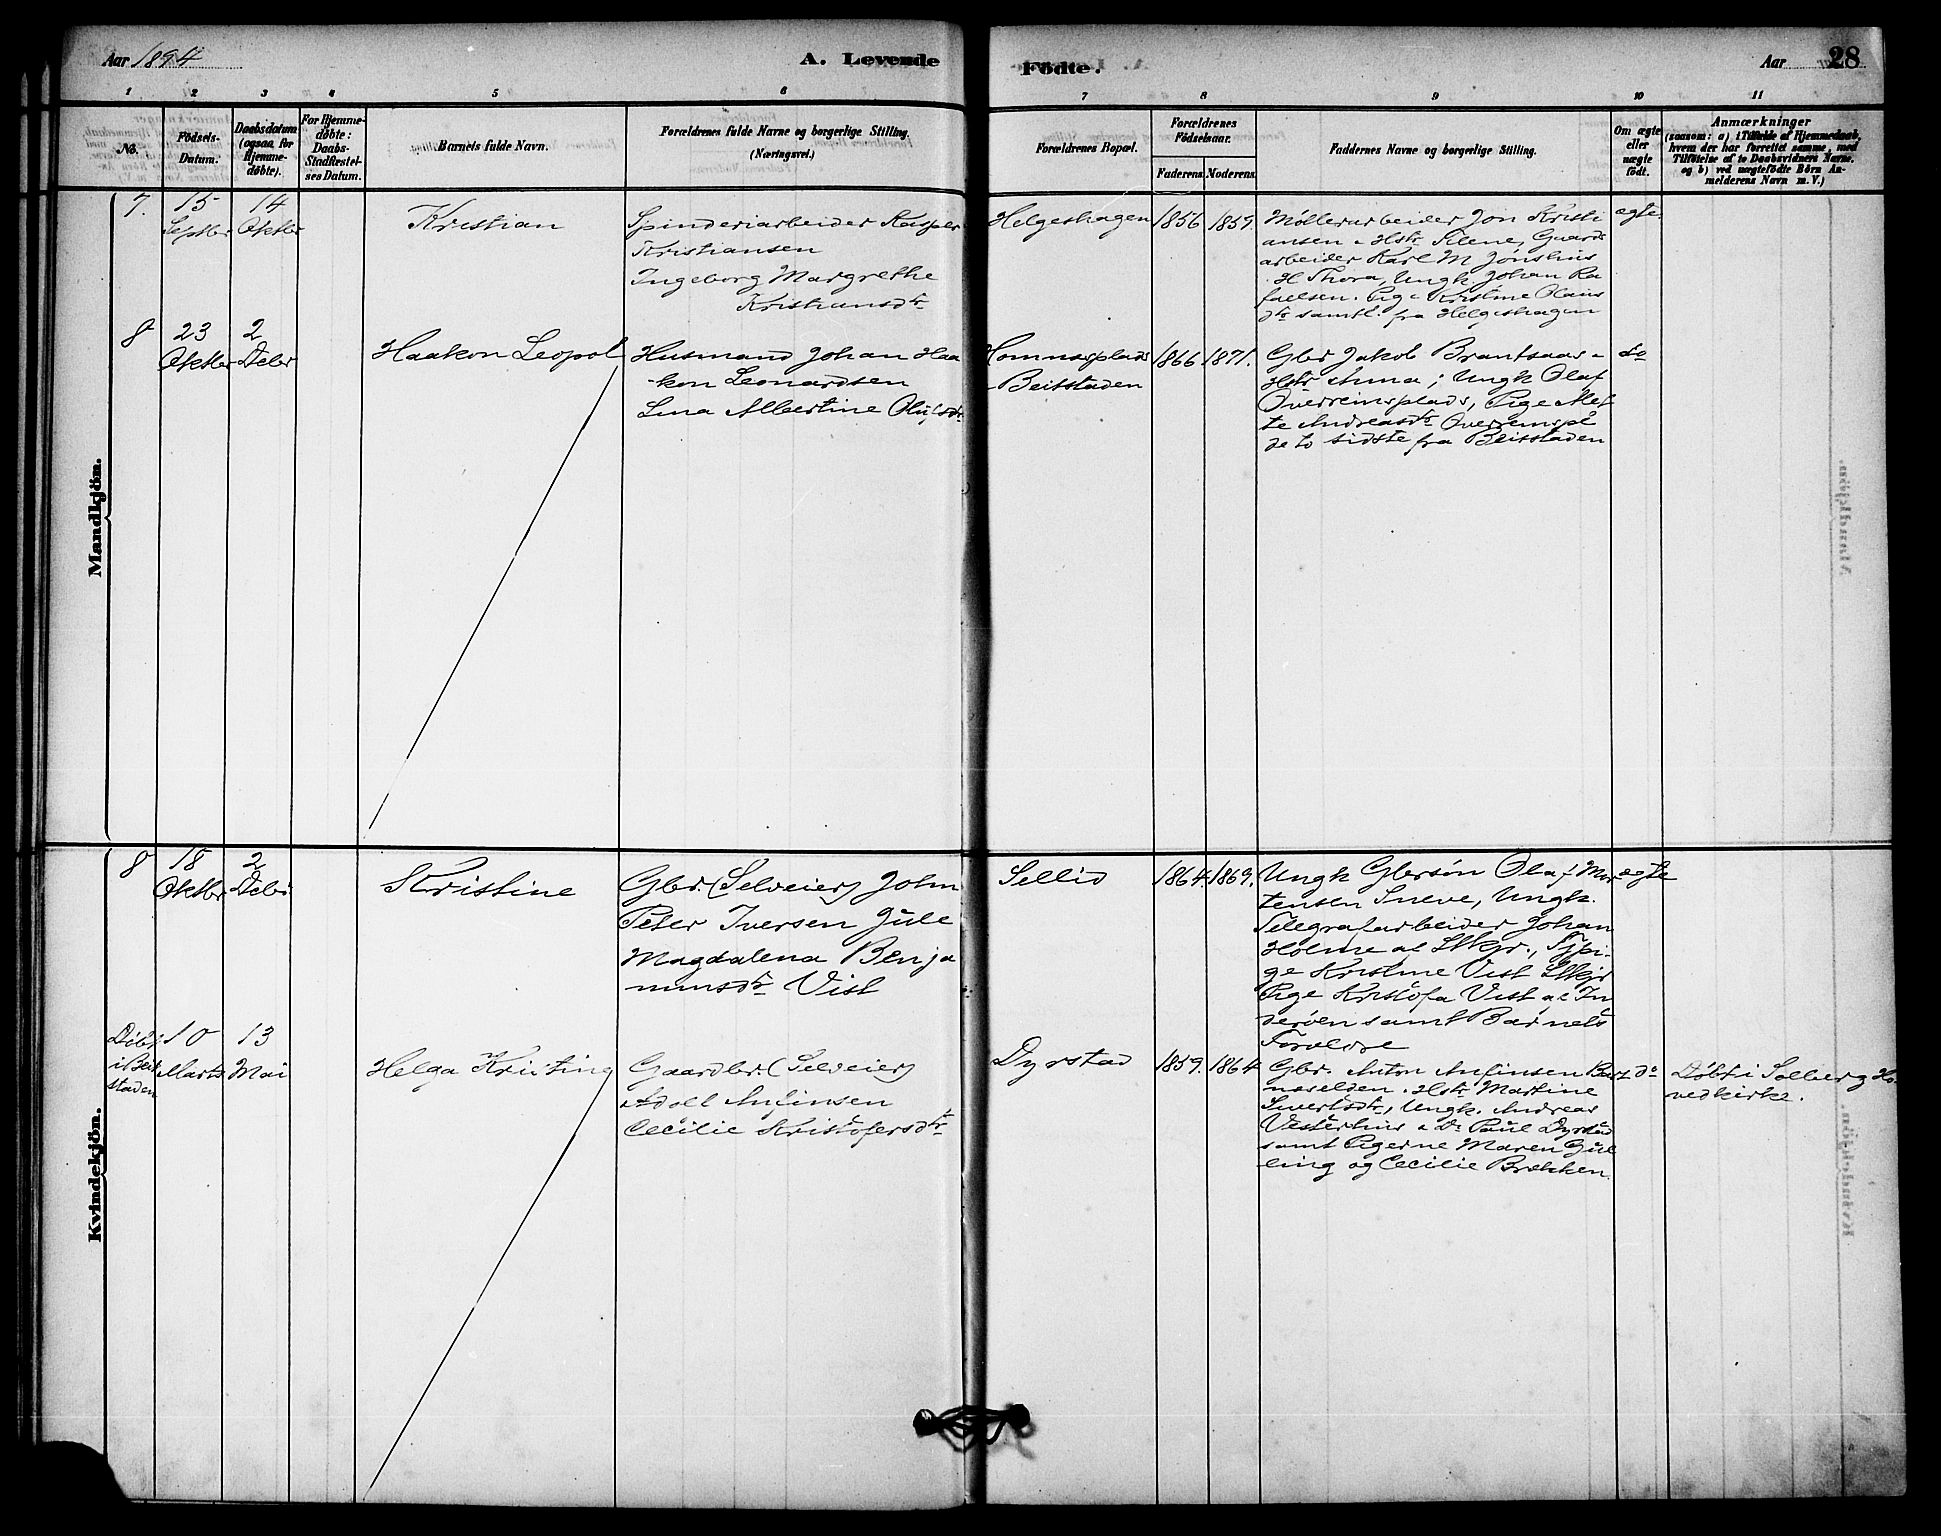 Aar 1894
A. Levende
Födte.
Aar 28
1 2 3 4 5 6 7 8 9 10 11
No.
Födsels-
Datum.
Daabsdatum
(ogsaa for
Hjemme-
døbte).
For Hjemme-
døbte:
Daabs-
Stadfæstel-
ses Datum.
Barnets fulde Navn.
Forældrenes fulde Navne og borgerlige Stilling.
(Næringsvei.)
Forældrenes Bopæl.
Forældrenes
Födselsaar.
Faderens
Moderens
Faddernes Navne og borgerlige Stilling.
Om ægte
eller
uægte
født.
Anmærkninger
(saasom: a) i Tilfælde af Hjemmedaab,
hvem der har forrettet samme, med
Tilføielse af to Daabsvidners Navne.
og b) ved uægtefødte Börn An-
melderens Navn m. V.)
Mandkjön.
7.
15
Septbr
14
Oktbr
Kristian
Spinderiarbeider Kasper
Kristiansen
Ingeborg Margrethe
Kristiansdtr
Helgeshagen
1856
1859.
Møllerarbeider Jon Kristi
ansen Hstr Silene, Gaards
arbeider Karl M Jonslius
H Thora, Ungk. Johan Ra
faelsen. Pige Kristine Olaus
dtr samtl. fra Helgeshagen
ægte
8
23
Oktbr
2
Debr
Haakon Leopol
Husmand Johan Haa
-kon Leonardsen
Lina Albertine Olufsdtr
Homnesplads
Beitstaden
1866
1871.
Gbr Jakob Brantsaas
Hstr Anna; Ungk Olaf
Overreinsplads, Pige Met
te Andreasdtr Overreinspl
de to sidste fra Beitstaden
do
Kvindekjön.
8
18
Oktbr
2
Debr
Kristine
Gbr. (Selveier) John
Peter Iversen Jule
Magdalena Benja
minsdtr Vist
Sellid
1864.
1869.
Ungk Gbrsøn Olaf Mor
tensen Sneve, Ungk.
Telegrafarbeider Johan
Holme af Stkjr., Tjpi-
ge Kristine Vist Stkjr
Pige Kristofa Vist af In
derøen samt Barnets
Forældre
ægte
Døbt
i Beit
staden
10
Marts
13
Mai
Helga Kristine
Gaardbr. (Selveier)
Adolf Anfinsen
Cecilie Kristofersdtr
Dyrstad
1859.
1864
Gbr. Anton Anfinsen Bar
naselden. Hstr Martine
Sivertsdtr, Ungk. Andreas
Vesterhus Do Paul Dyrstad
samt Pigerne Maren Gul
ling og Cecilie Brekken.
do
Døbt i Solberg Ho
vedkirke.